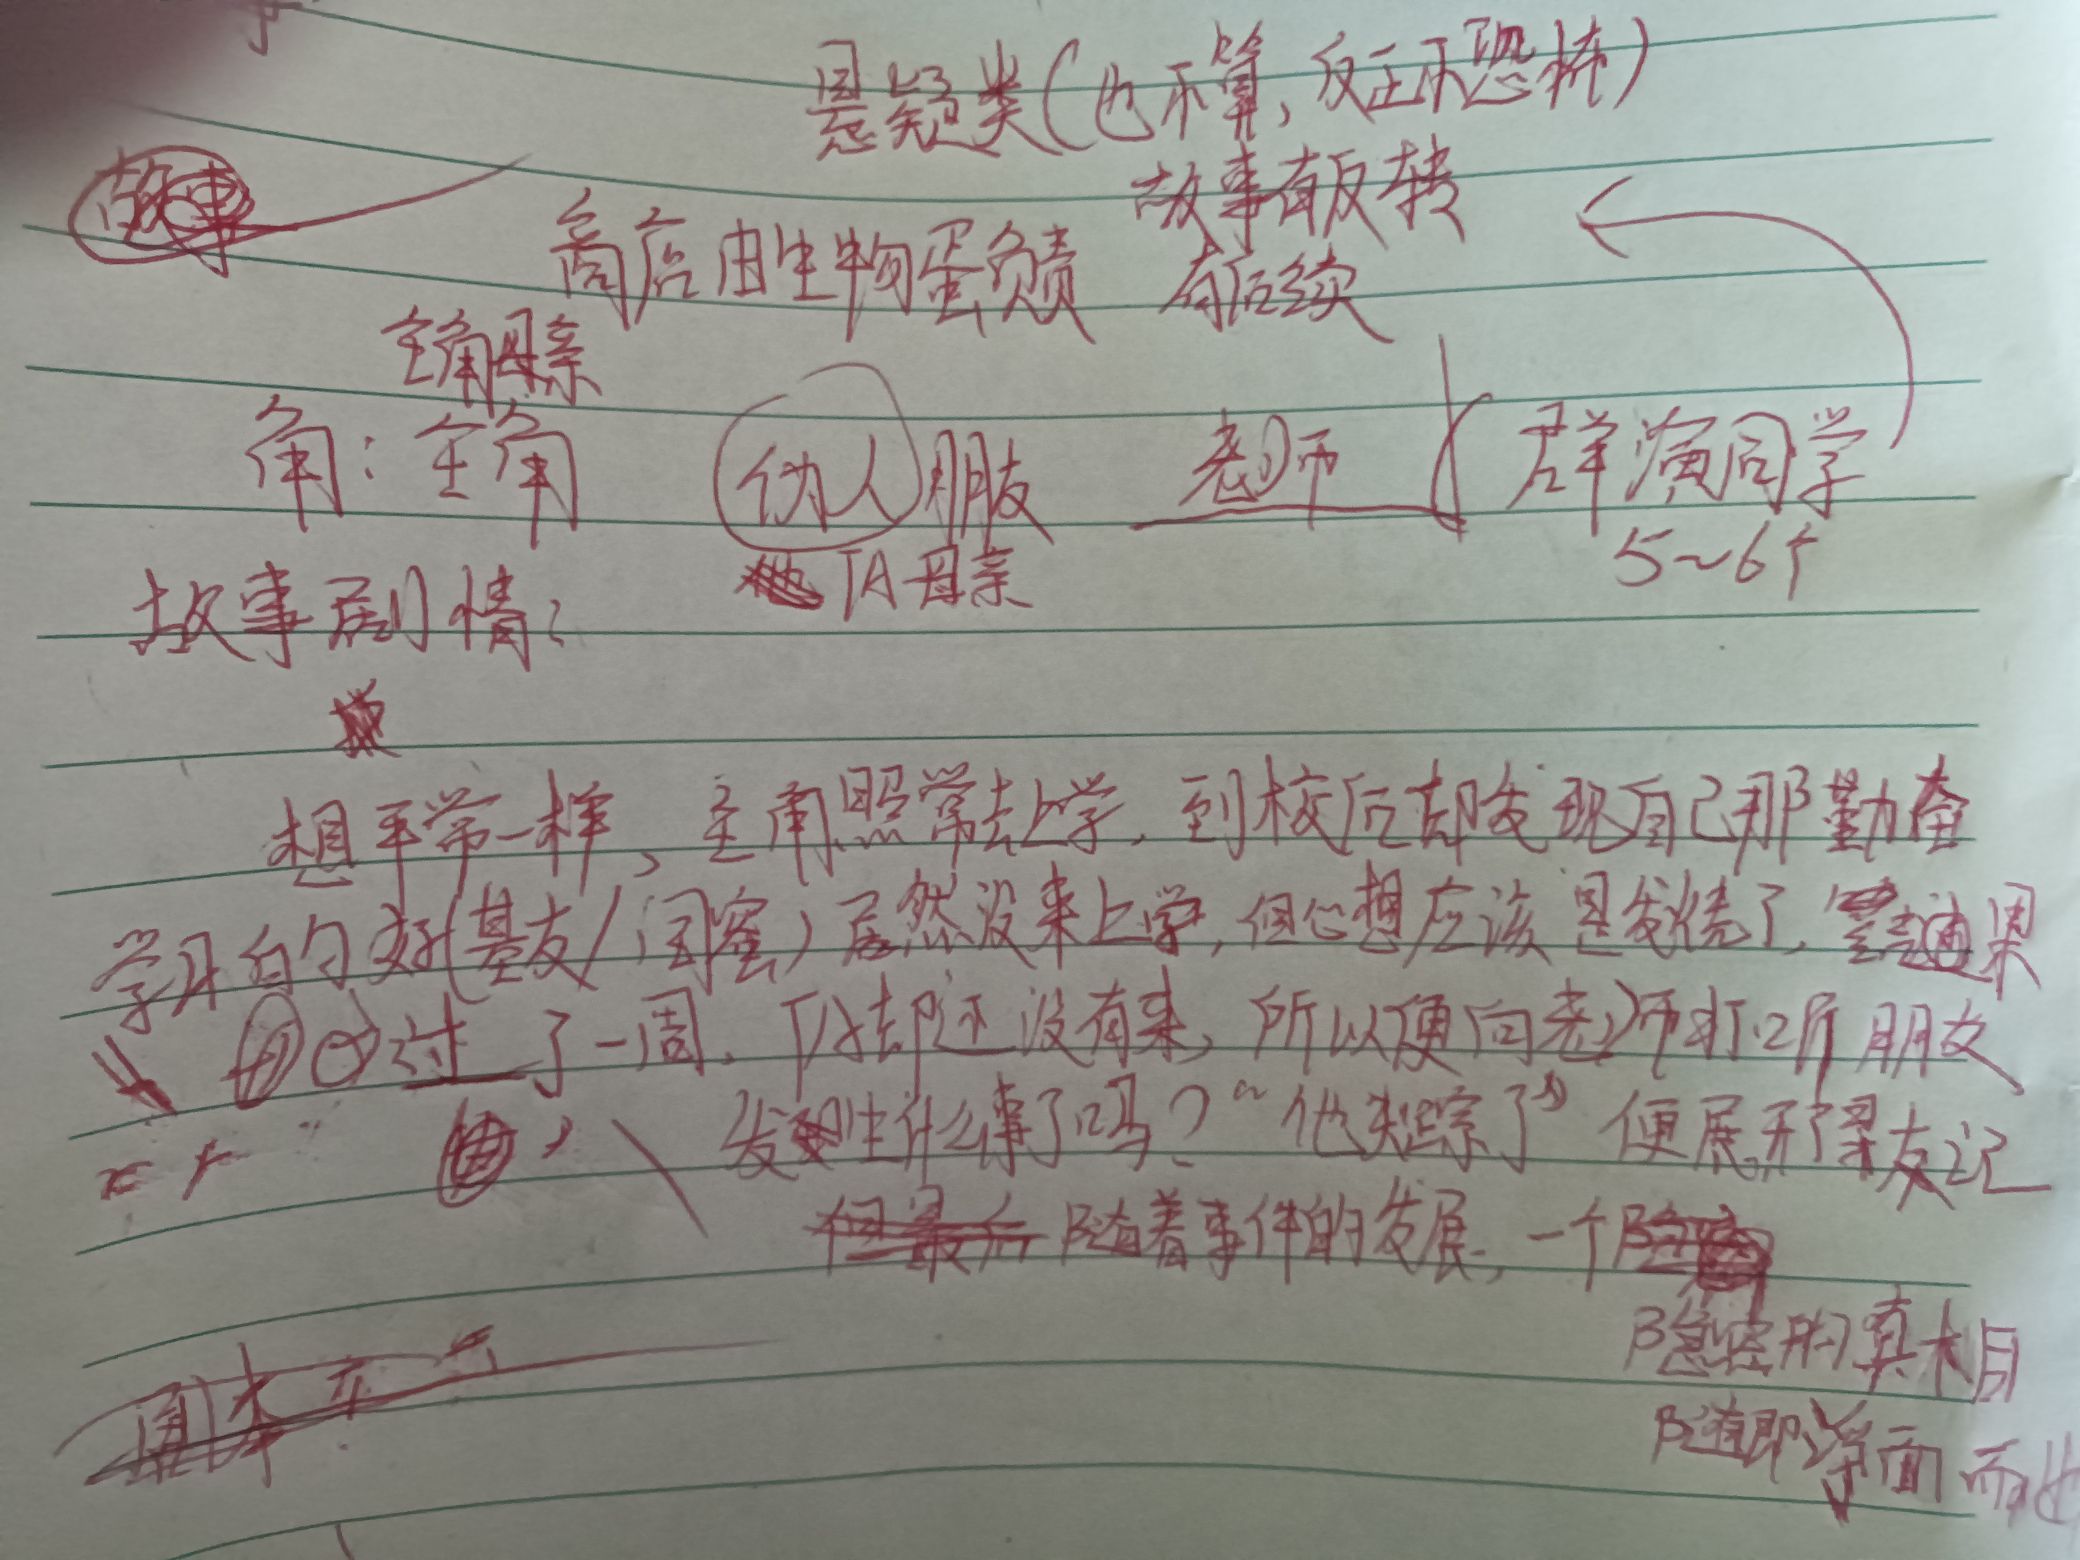 悬疑类(也不算,反正不恐怖)
故事
故事有反转
商店由生物蛋负责 有后续
主角母亲
角:主角 伪人 朋友 老师 (群演同学
TA母亲 5~6个
故事剧情:
想平常一样、主角照常去上学,到校后却发现自己那勤奋
学习的勺好(基友/闺蜜)居然没来上学,但心想应该是发烧了,果
过了一周,TA却还没有来,所以便向老师打听朋友
发生什么事了吗?“他失踪了”便展开了寻友记
随着事件的发展,一个
隐密的真相
随即浮面 而他